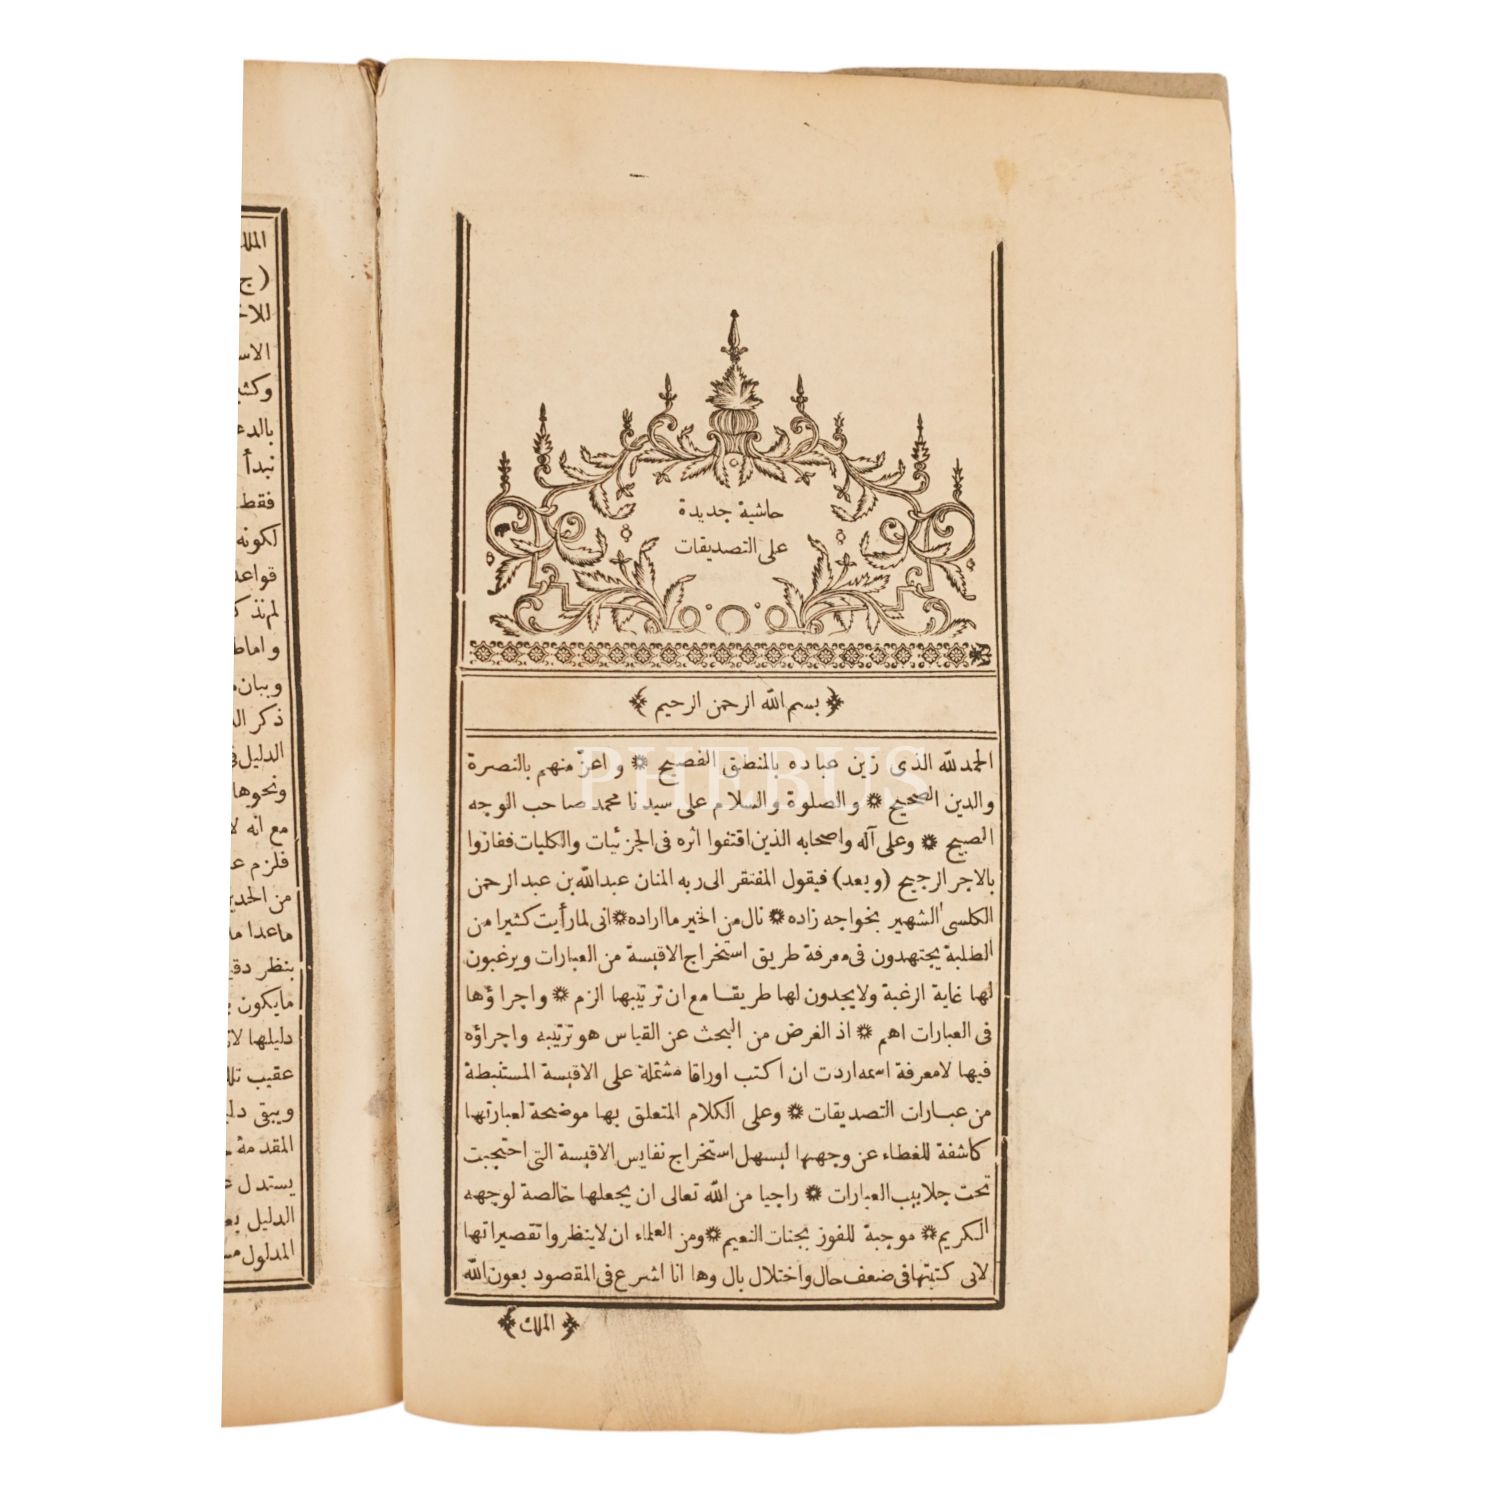 حاشية جديدة
على التصديقات
بسم الله الرحمن الرحيم
الحمد لله الذى زين عباده بالمنطق الفصيح * واعز منهم بالنصرة
والدين الصحيح * والصلوة والسلام على سيدنا محمد صاحب الوجه
الصبيح * وعلى آله واصحابه الذين اقتفوا اثره فى الجزئيات والكليات ففازوا
بالاجر الرجيح (وبعد) فيقول المفتقر الى ربه المنان عبدالله بن عبدالرحمن
الكلسى الشهير بخواجه زاده * نال من الخير ما اراده * انى لما رأيت كثيرا من
الطلبة يجتهدون فى معرفة طريق استخراج الاقيسة من العبارات ويرغبون
لها غاية الرغبة ولايجدون لها طريقا مع ان ترتيبها الزم * واجراؤها
فى العبارات اهم * اذ الغرض من البحث عن القياس هو ترتيبه واجراؤه
فيها لامعرفة اسمه اردت ان اكتب اوراقا مشتملة على الاقيسة المستنبطة
من عبارات التصديقات * وعلى الكلام المتعلق بها موضحة لعبارتها
كاشفة للغطاء عن وجهها ليسهل استخراج نفايس الاقيسة التى احتجبت
تحت جلابيب العبارات * راجيا من الله تعالى ان يجعلها خالصة لوجهه
الكريم * موجبة للفوز بجنات النعيم * ومن العلماء ان لاينظروا تقصيراتها
لانى كتبتها فى ضعف حال واختلال بال وها انا اشرع فى المقصود بعون الله
الملك
الملك
(ج
وكثي
نبدأ
فقط
لكونه
قواعد
ذكر ال
الدليل ف
ونحوها
مع انه لا
فلزم ع
ماعدا ما
مايكون
عقيب تلك
ويبقى دلي
المقدمة
يستدل ع
الدليل بع
المدلول مس
PHEBUS